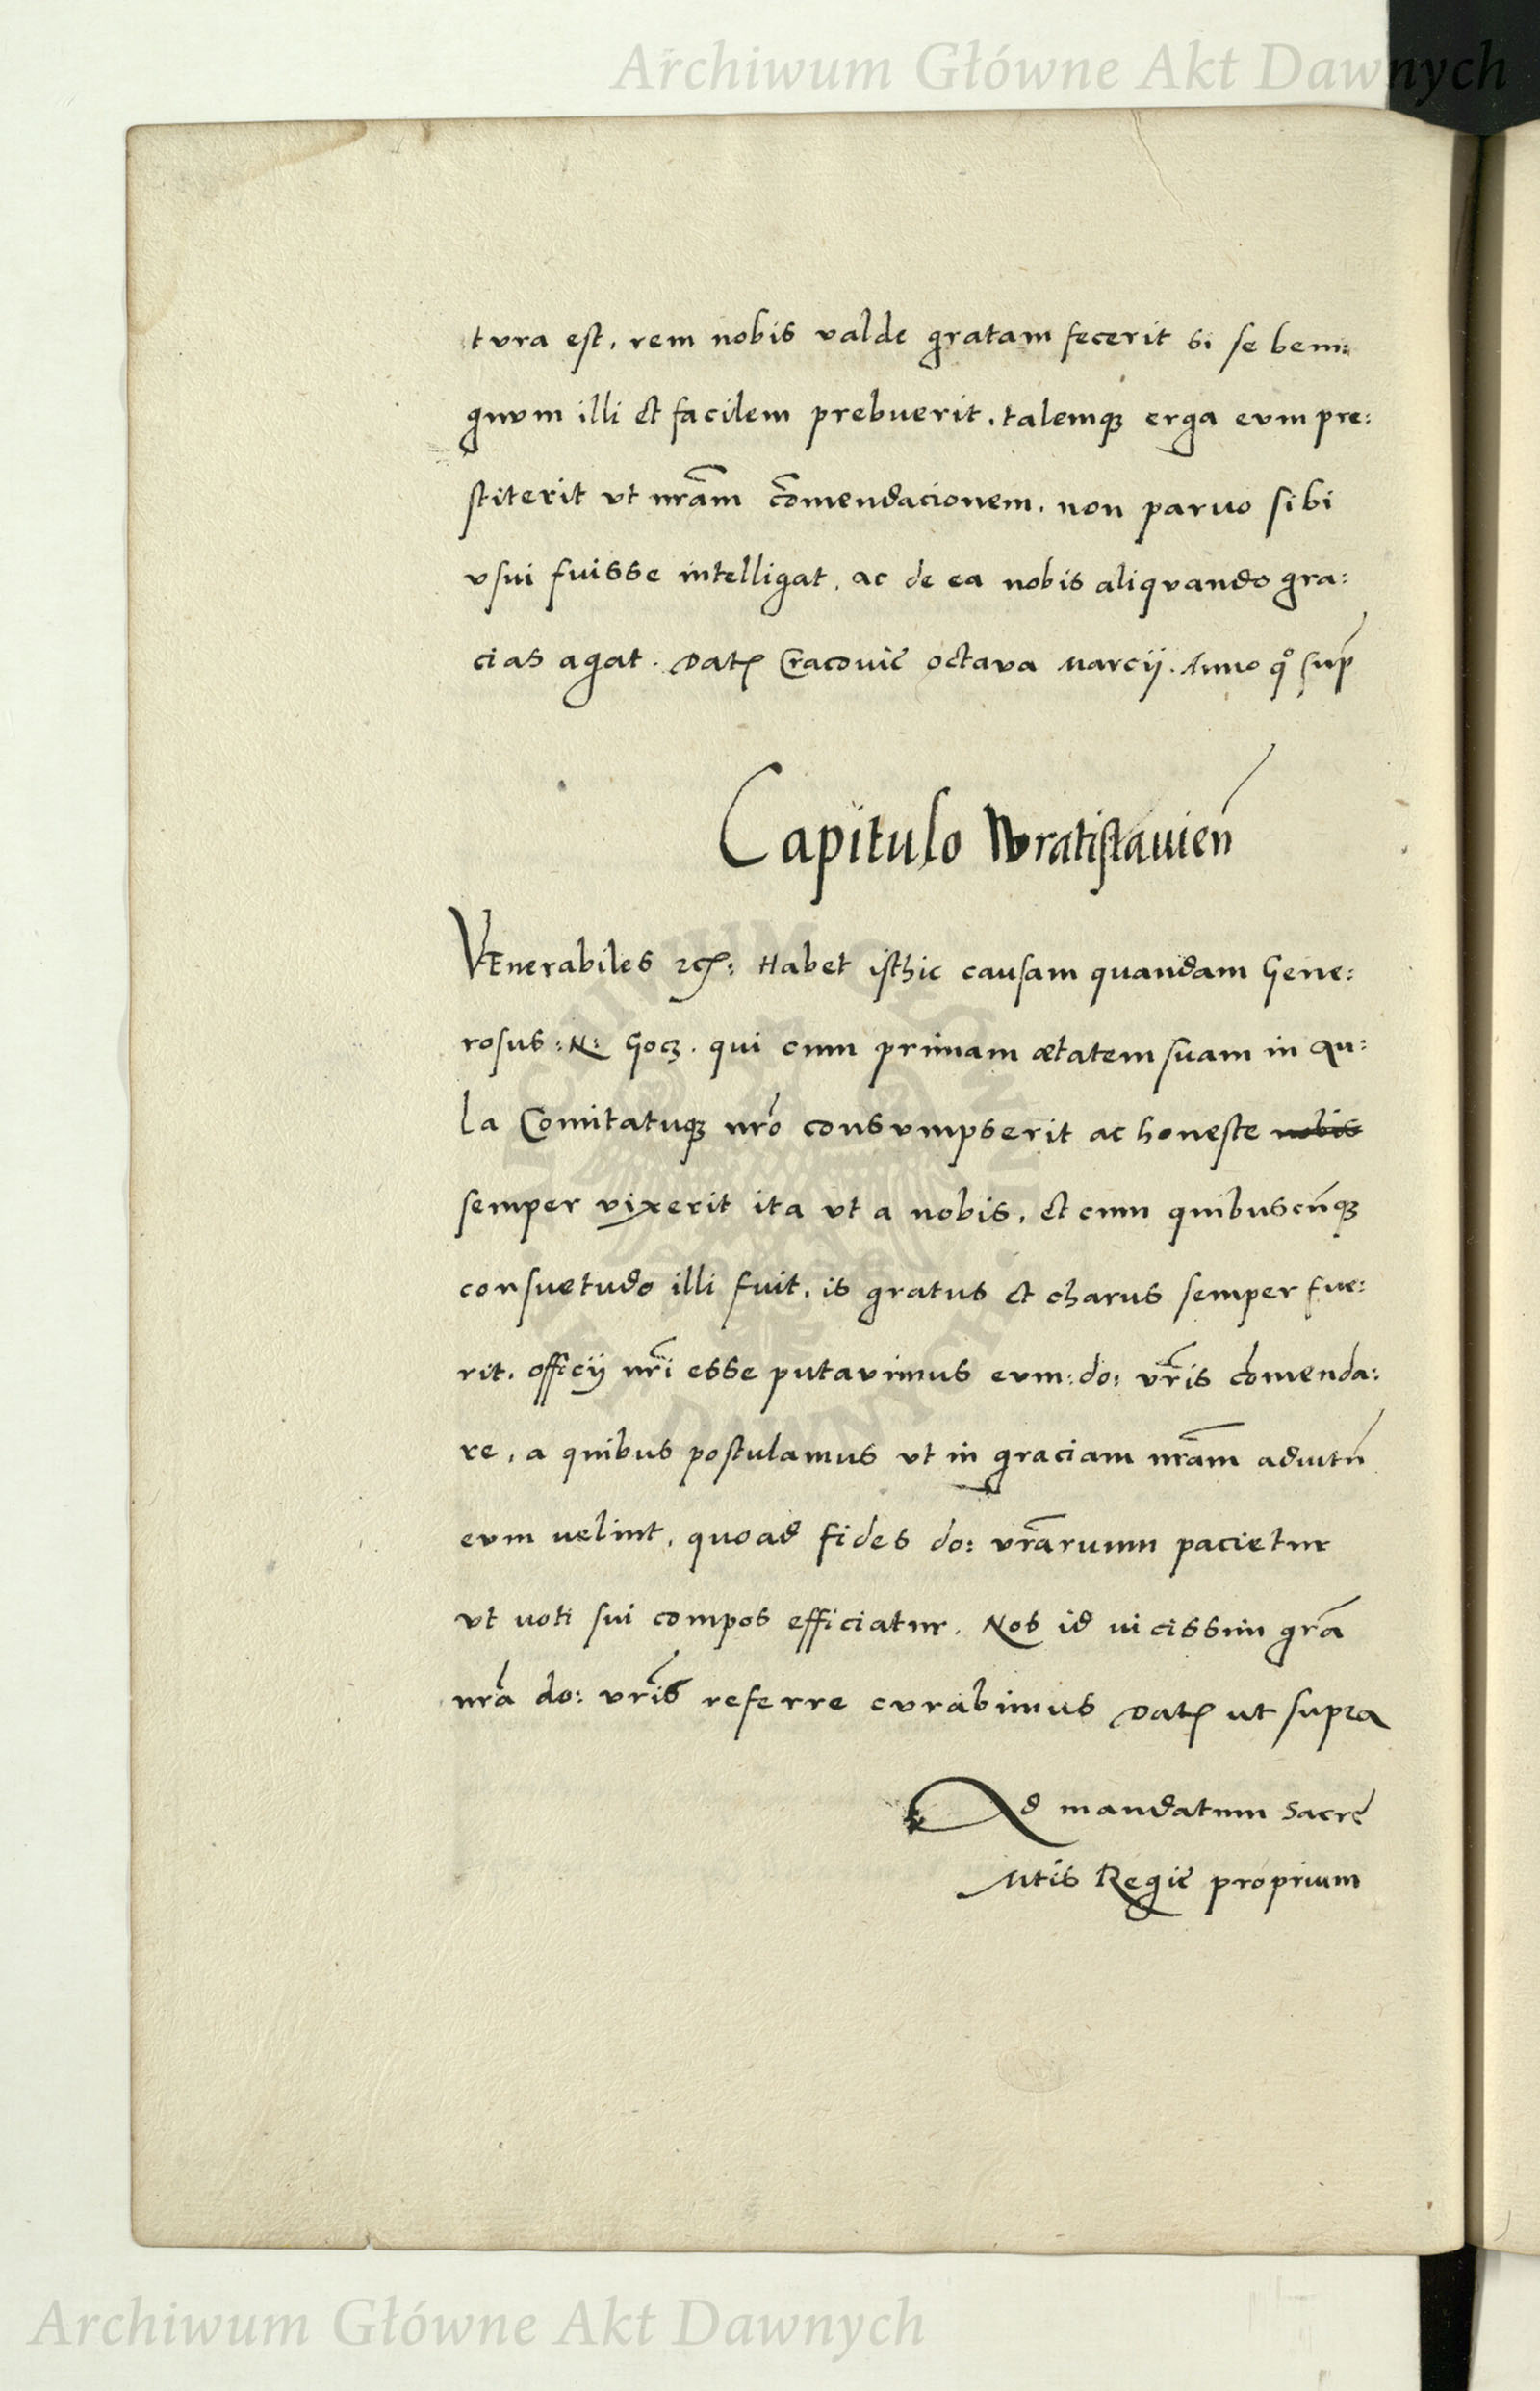 Archiwum Główne Akt Dawnych
tura est, rem nobis valde gratam fecerit si se beni:
gnum illi et facilem prebuerit, talemq3 erga eum pre:
stiterit ut nr̃am c̃omendacionem, non paruo sibi
usui fuisse intelligat, ac de ea nobis aliquando gra:
cias agat. Dat Cracouie octava Marcij. Anno qo sup
Capitulo Wratislauien
VEnerabiles Habet isthic causam quandam Gene:
rosus :N: Gocz. qui cum primam ætatem suam in Au:
la Comitatuq3 nr̃o consumpserit ac honeste nobis
semper vixerit ita ut a nobis, et cum quibuscũq3
consuetudo illi fuit, is gratus et charus semper fue:
rit, officij nr̃i esse putavimus eum :do: vr̃is c̃omenda:
re, a quibus postulamus ut in graciam nr̃am adiutũ
eum velint, quoad fides do: vr̃arum pacietur
ut voti sui compos efficiatur. Nos id vicissim gr̃a
nr̃a do: vr̃is referre curabimus Dat ut supra
Ad mandatum Sacre
Mtis Regie proprium
Archiwum Główne Akt Dawnych